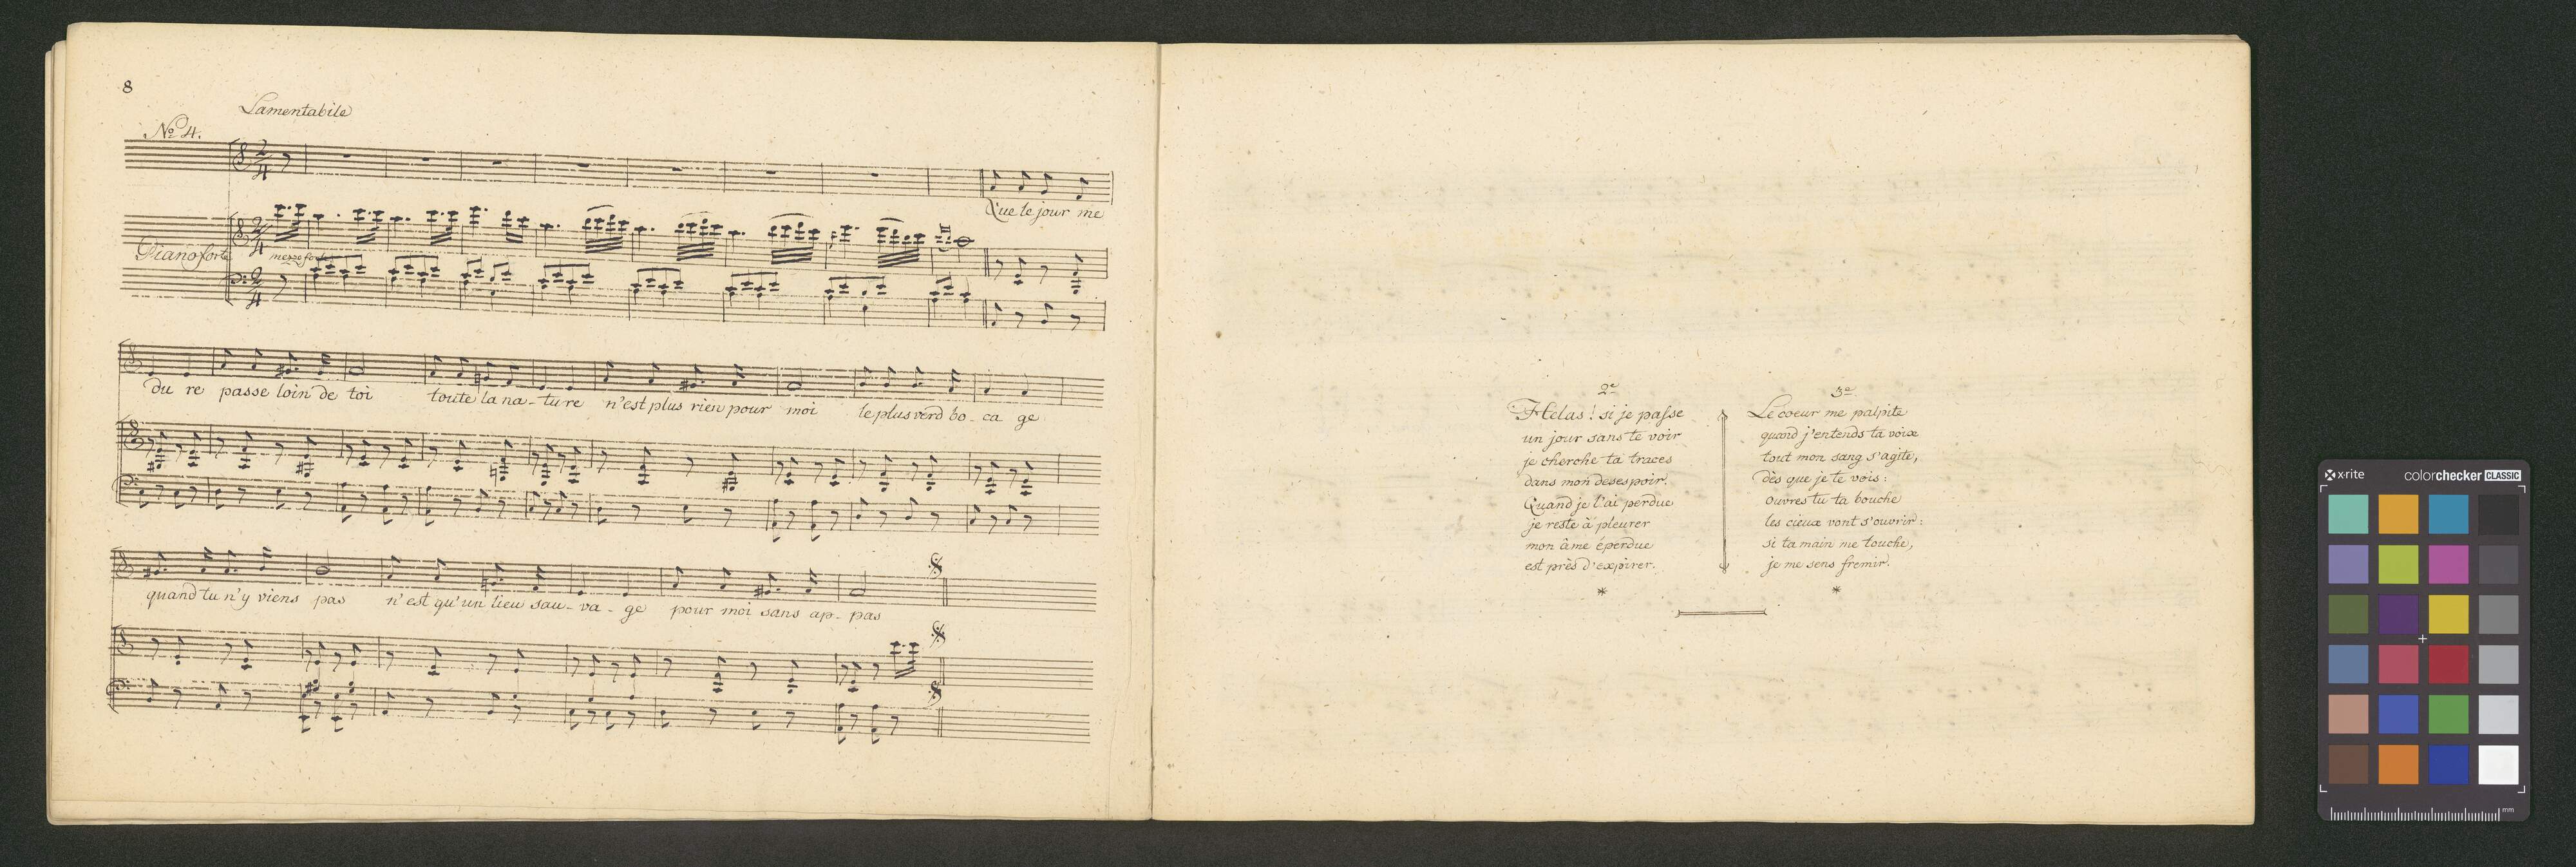 8
Lamentabile
No. 4.
Que le jour me
Pianoforte
mezzo fort
du re passe loin de toi toute la na - ture n'est plus rien pour moi le plus verd bo - ca ge
quand tu n'y viens pas n'est qu'un lieu sau - va - ge pour moi sans ap - pas
2e
Helas! si je passe
un jour sans te voir
je cherche ta traces
dans mon desespoir.
Quand je l'ai perdue
je reste à pleurer
mon âme éperdue
est près d'expirer.
*
3e
Le coeur me palpite
quand j'entends ta voix
tout mon sang s'agite,
dès que je te vois:
ouvres tu ta bouche
les cieux vont s'ouvrir:
si ta main me touche,
je me sens fremir.
*
x-rite colorchecker CLASSIC
mm